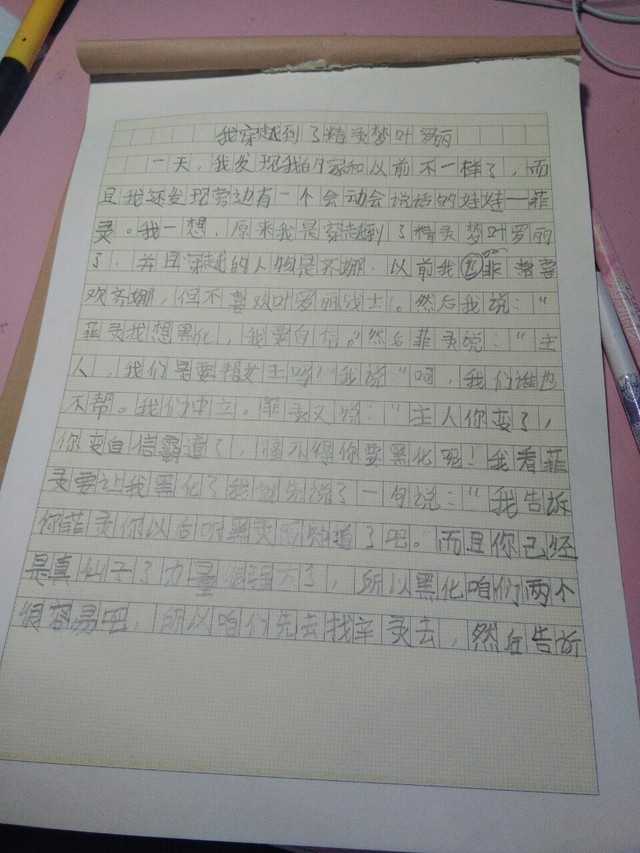 我穿越到了精灵梦叶罗丽
一天，我发现我的家和以前不一样了，而
且我还发现旁边有一个会动会说话的娃娃—菲
灵。我一想，原来我是穿越到了精灵梦叶罗丽
了，并且穿越的人物是齐娜，以前我非常喜
欢齐娜，但不喜欢叶罗丽战士。然后我说：“
菲灵我想黑化，我要自信。”然后菲灵说：“主
人，我们是要帮女王吗？”我说“呵，我们谁也
不帮。我们中立。菲灵又说：“主人你变了，
你变自信霸道了，怪不得你要黑化呢！我看菲
灵要让我黑化了我就先说了一句说：“我告诉
你菲灵你以后叫黑灵而知道了吧。而且你已经
是真仙子了力量很强大了，所以黑化咱们两个
很容易吧，所以咱们先去找辛灵去，然在告诉